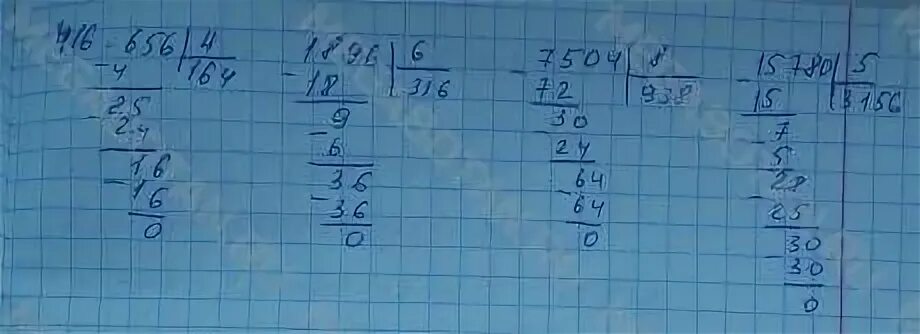 416 - 656 4
- 4 164
25
- 24
16
- 16
0
1896 6
- 18 316
9
- 6
36
- 36
0
- 7504 8
72 938
30
24
64
- 64
0
- 15780 5
15 3156
7
- 5
28
- 25
30
- 30
0